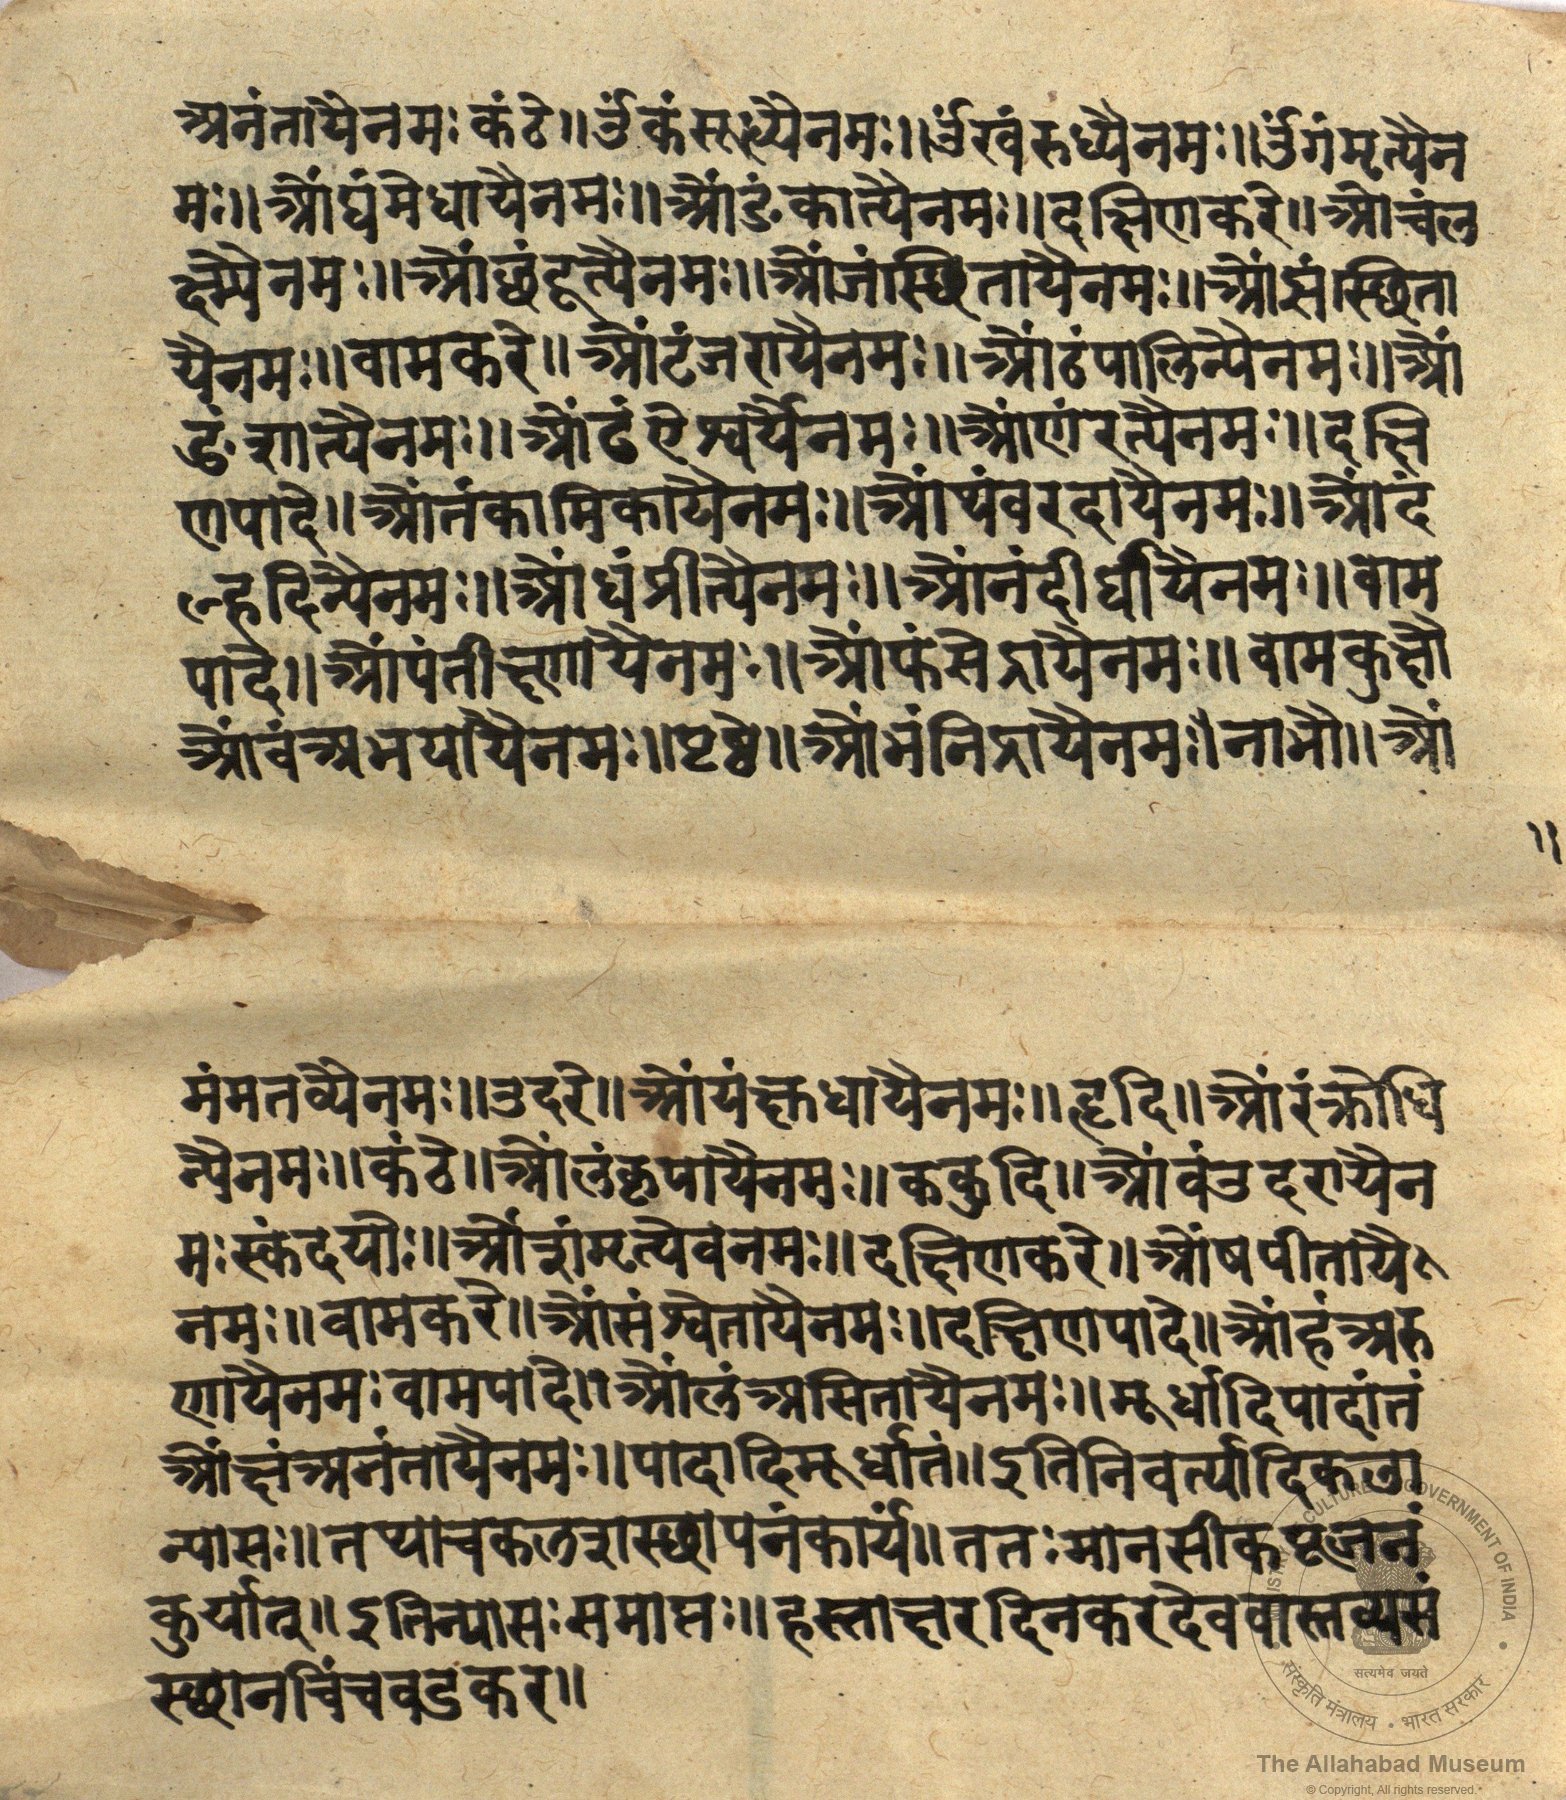 अनंतायैनमः कंठे॥ ॐकंसृष्ट्यैनमः॥ ॐखंरुध्यैनमः॥ ॐगंमृत्यैन
मः॥ ओंघंमेधायैनमः॥ ओंङंकात्यैनमः॥ दक्षिणकरे॥ ओंचंल
क्ष्म्यैनमः॥ ओंछंदूत्यैनमः॥ ओंजंस्थितायैनमः॥ ओंझंस्थिता
यैनमः॥ वामकरे॥ ओंटंजरायैनमः॥ ओंठंपालिन्यैनमः॥ ओं
डंशात्यैनमः॥ ओंढंऐश्वर्यैनमः॥ ओंणंरत्यैनमः॥ दक्षि
णपादे॥ ओंतंकामिकायैनमः॥ ओंथंवरदायैनमः॥ ओंदं
ल्हादिन्यैनमः॥ ओंधंप्रीत्यैनमः॥ ओंनंदीर्घायैनमः॥ वाम
पादे॥ ओंपंतीक्ष्णायैनमः॥ ओंफंरौद्रायैनमः॥ वामकुक्षौ
ओंबंअभयायैनमः॥ पृष्ठे॥ ओंभंनिद्रायैनमः॥ नाभौ॥ ओं
॥
मंमतव्यैनमः॥ उदरे॥ ओंयंक्तधायैनमः॥ हृदि॥ ओंरंक्रोधि
न्यैनमः॥ कंठे॥ ओंलंकृपायैनमः॥ ककुदि॥ ओंवंउदरायैन
मः स्कंदयोः॥ ओंशंमृत्यैवनमः॥ दक्षिणकरे॥ ओंषपीतायै
नमः॥ वामकरे॥ ओंसंश्वेतायैनमः॥ दक्षिणपादे॥ ओंहंअरु
णायैनमः वामपादे॥ ओंलंअसितायैनमः॥ मूर्धादिपादांतं
ओंक्षंअनंतायैनमः॥ पादादिमूर्धातं॥ इतिनिवर्त्यादिकला
न्यासः॥ तथाचकलशस्थापनंकार्यं॥ ततः मानसीकपूजनं
कुर्यात्॥ इतिन्यासः समाप्तः॥ हस्ताक्षरदिनकरदेववास्तव्यसं
स्थानचिंचवडकर॥
MINISTRY OF CULTURE GOVERNMENT OF INDIA
सत्यमेव जयते
संस्कृति मंत्रालय • भारत सरकार
The Allahabad Museum
© Copyright, All rights reserved.